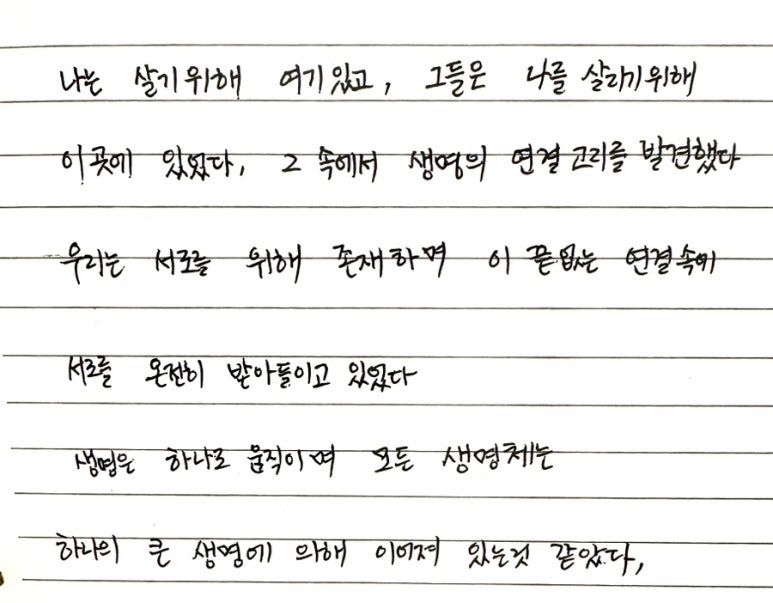 나는 살기위해 여기있고, 그들은 나를 살리기위해
이곳에 있었다, 그 속에서 생명의 연결고리를 발견했다
우리는 서로를 위해 존재하며 이 끝없는 연결속에
서로를 온전히 받아들이고 있었다
생명은 하나로 움직이며 모든 생명체는
하나의 큰 생명에 의해 이어져 있는것 같았다,